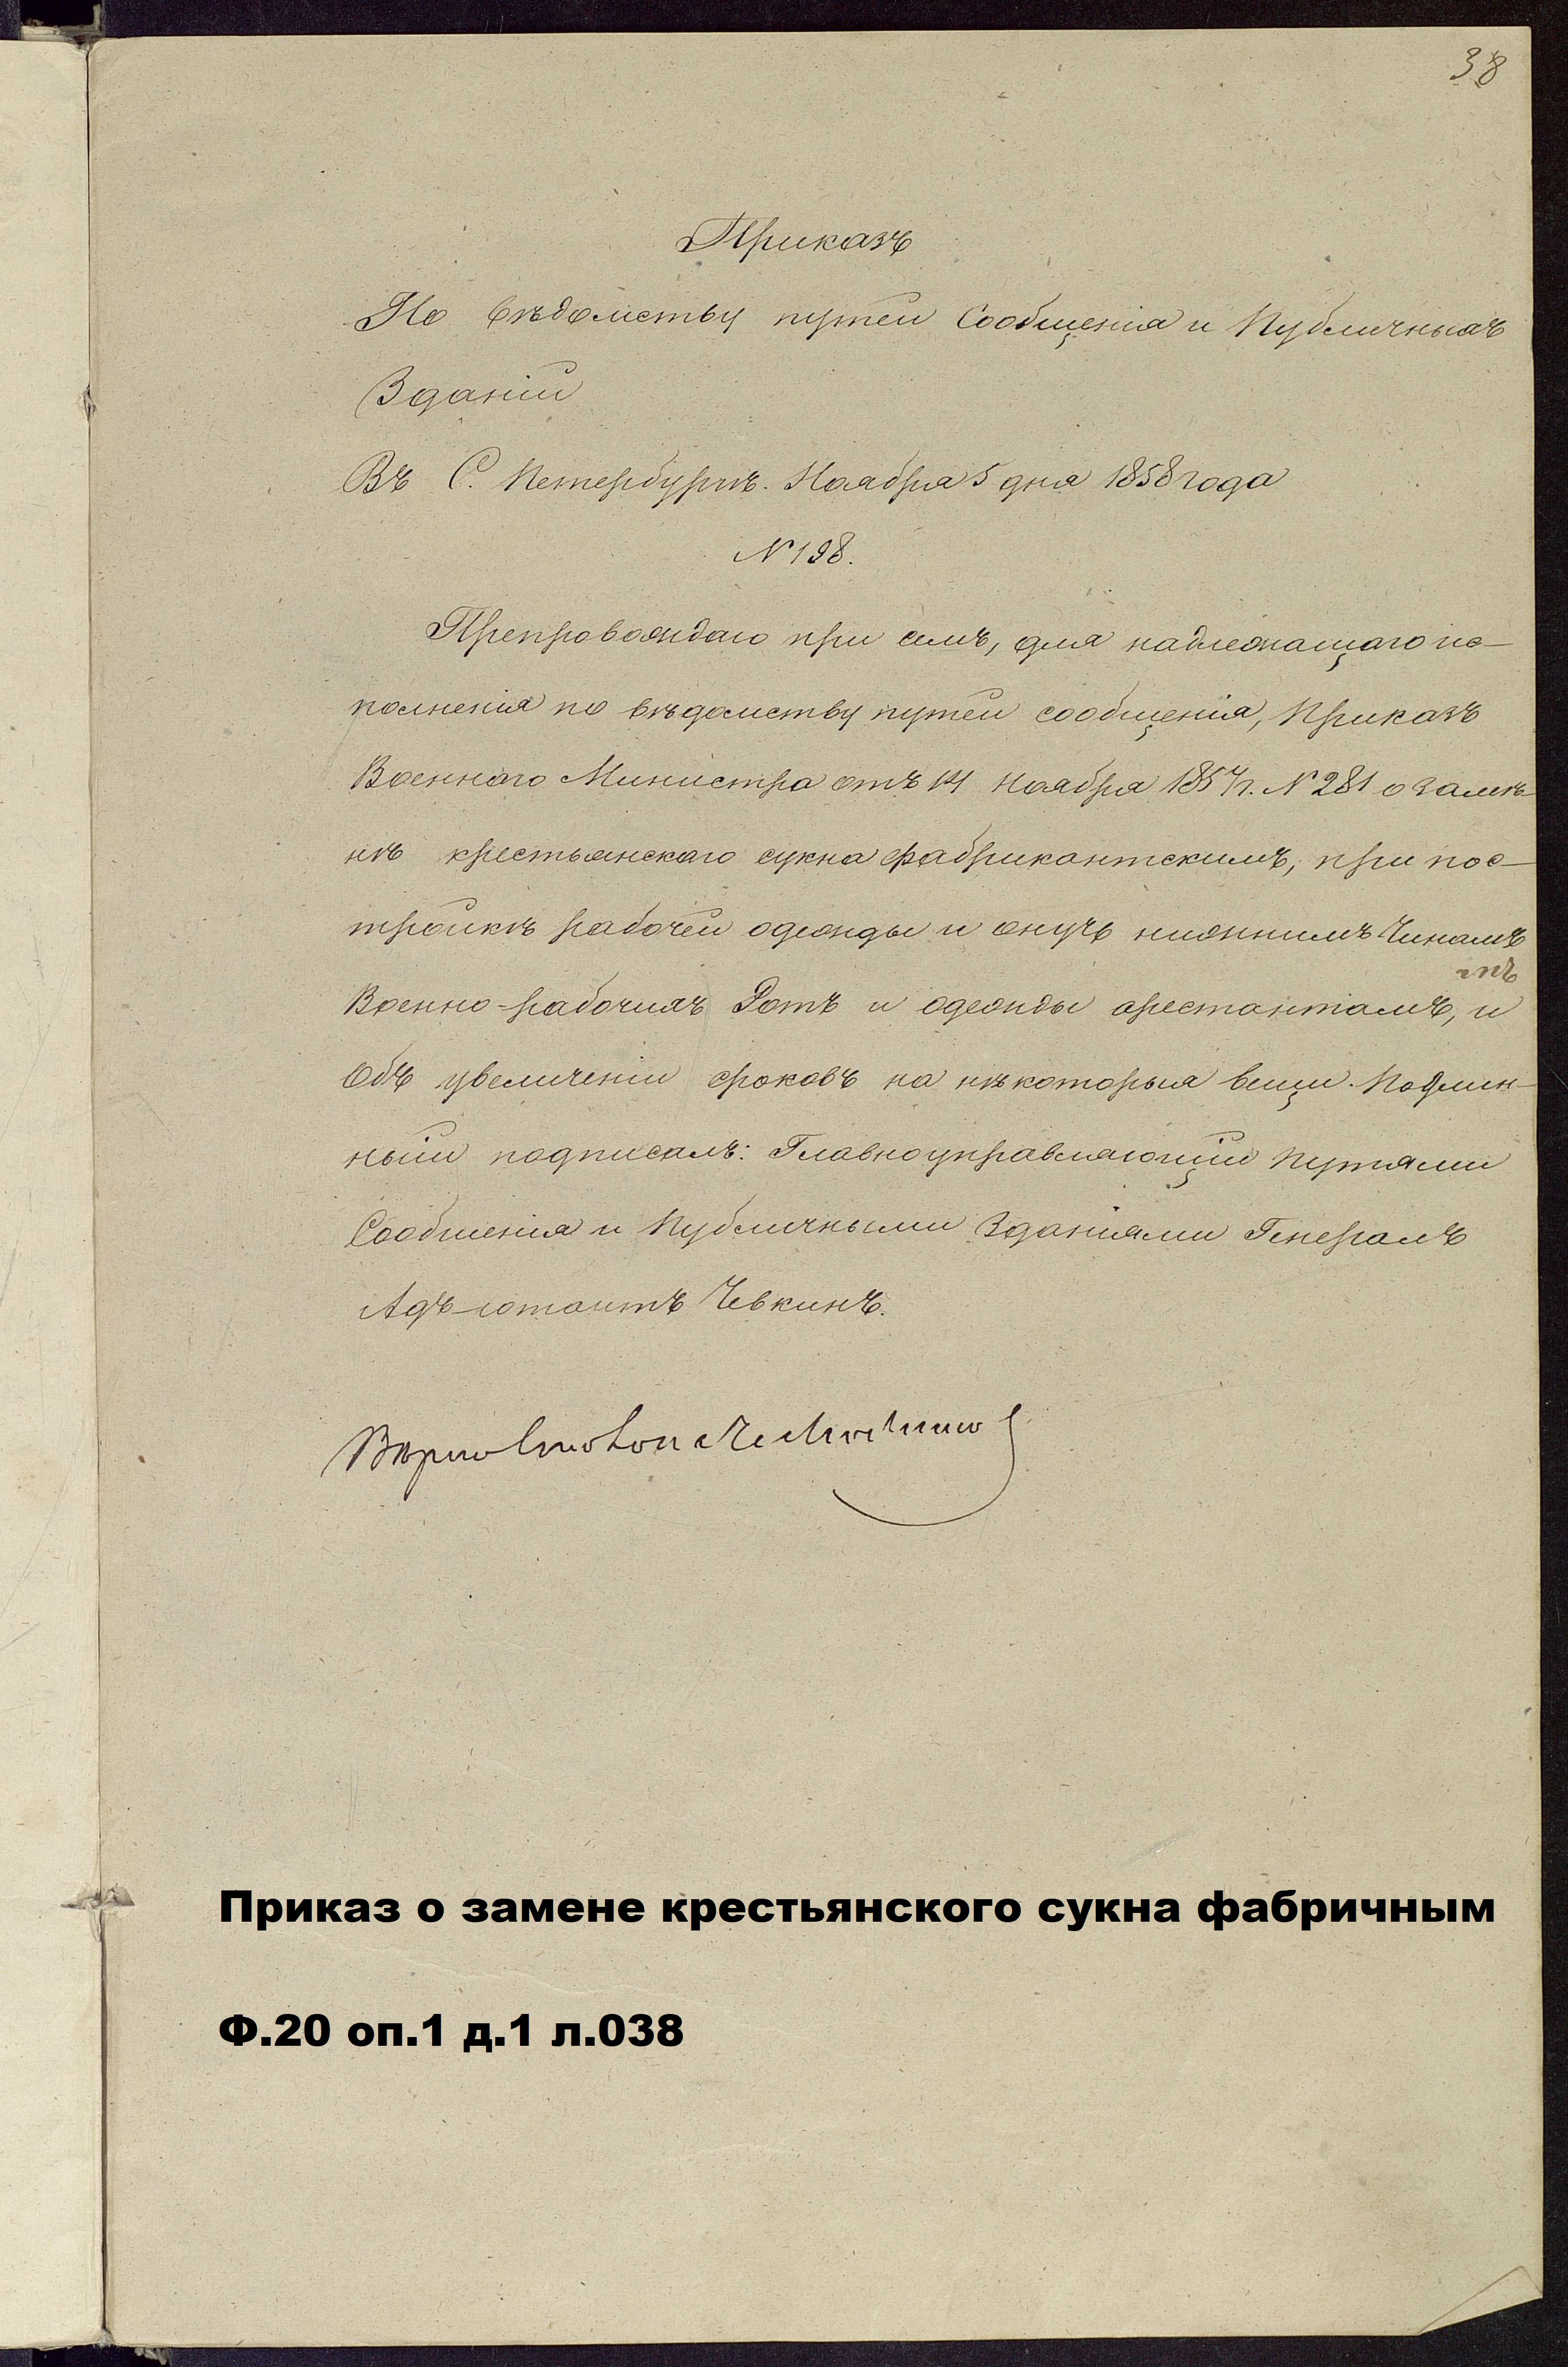 38
Приказъ
По вѣдомству путей Сообщенія и Публичныхъ
Зданій
Въ С. Петербургѣ. Ноября 5 дня 1858 года
N 198.
Препровождаю при семъ, для надлежащаго ис-
полненія по вѣдомству путей сообщенія, Приказъ
Военнаго Министра отъ 14 Ноября 1857 г. N 281 о замѣ-
нѣ крестьянскаго сукна фабрикантскимъ, при пос-
тройкѣ рабочей одежды и онучь нижнимъ Чинамъ
Военно-рабочихъ Ротъ и одежды арестантамъ, и
Объ увеличеніи сроковъ на нѣкоторыя вещи. Подлин-
ный подписалъ: Главноуправляющій Путями
Сообщенія и Публичными Зданіями Генералъ
Адъютантъ Чевкинъ.
Вѣрно
Приказ о замене крестьянского сукна фабричным
Ф.20 оп.1 д.1 л.038